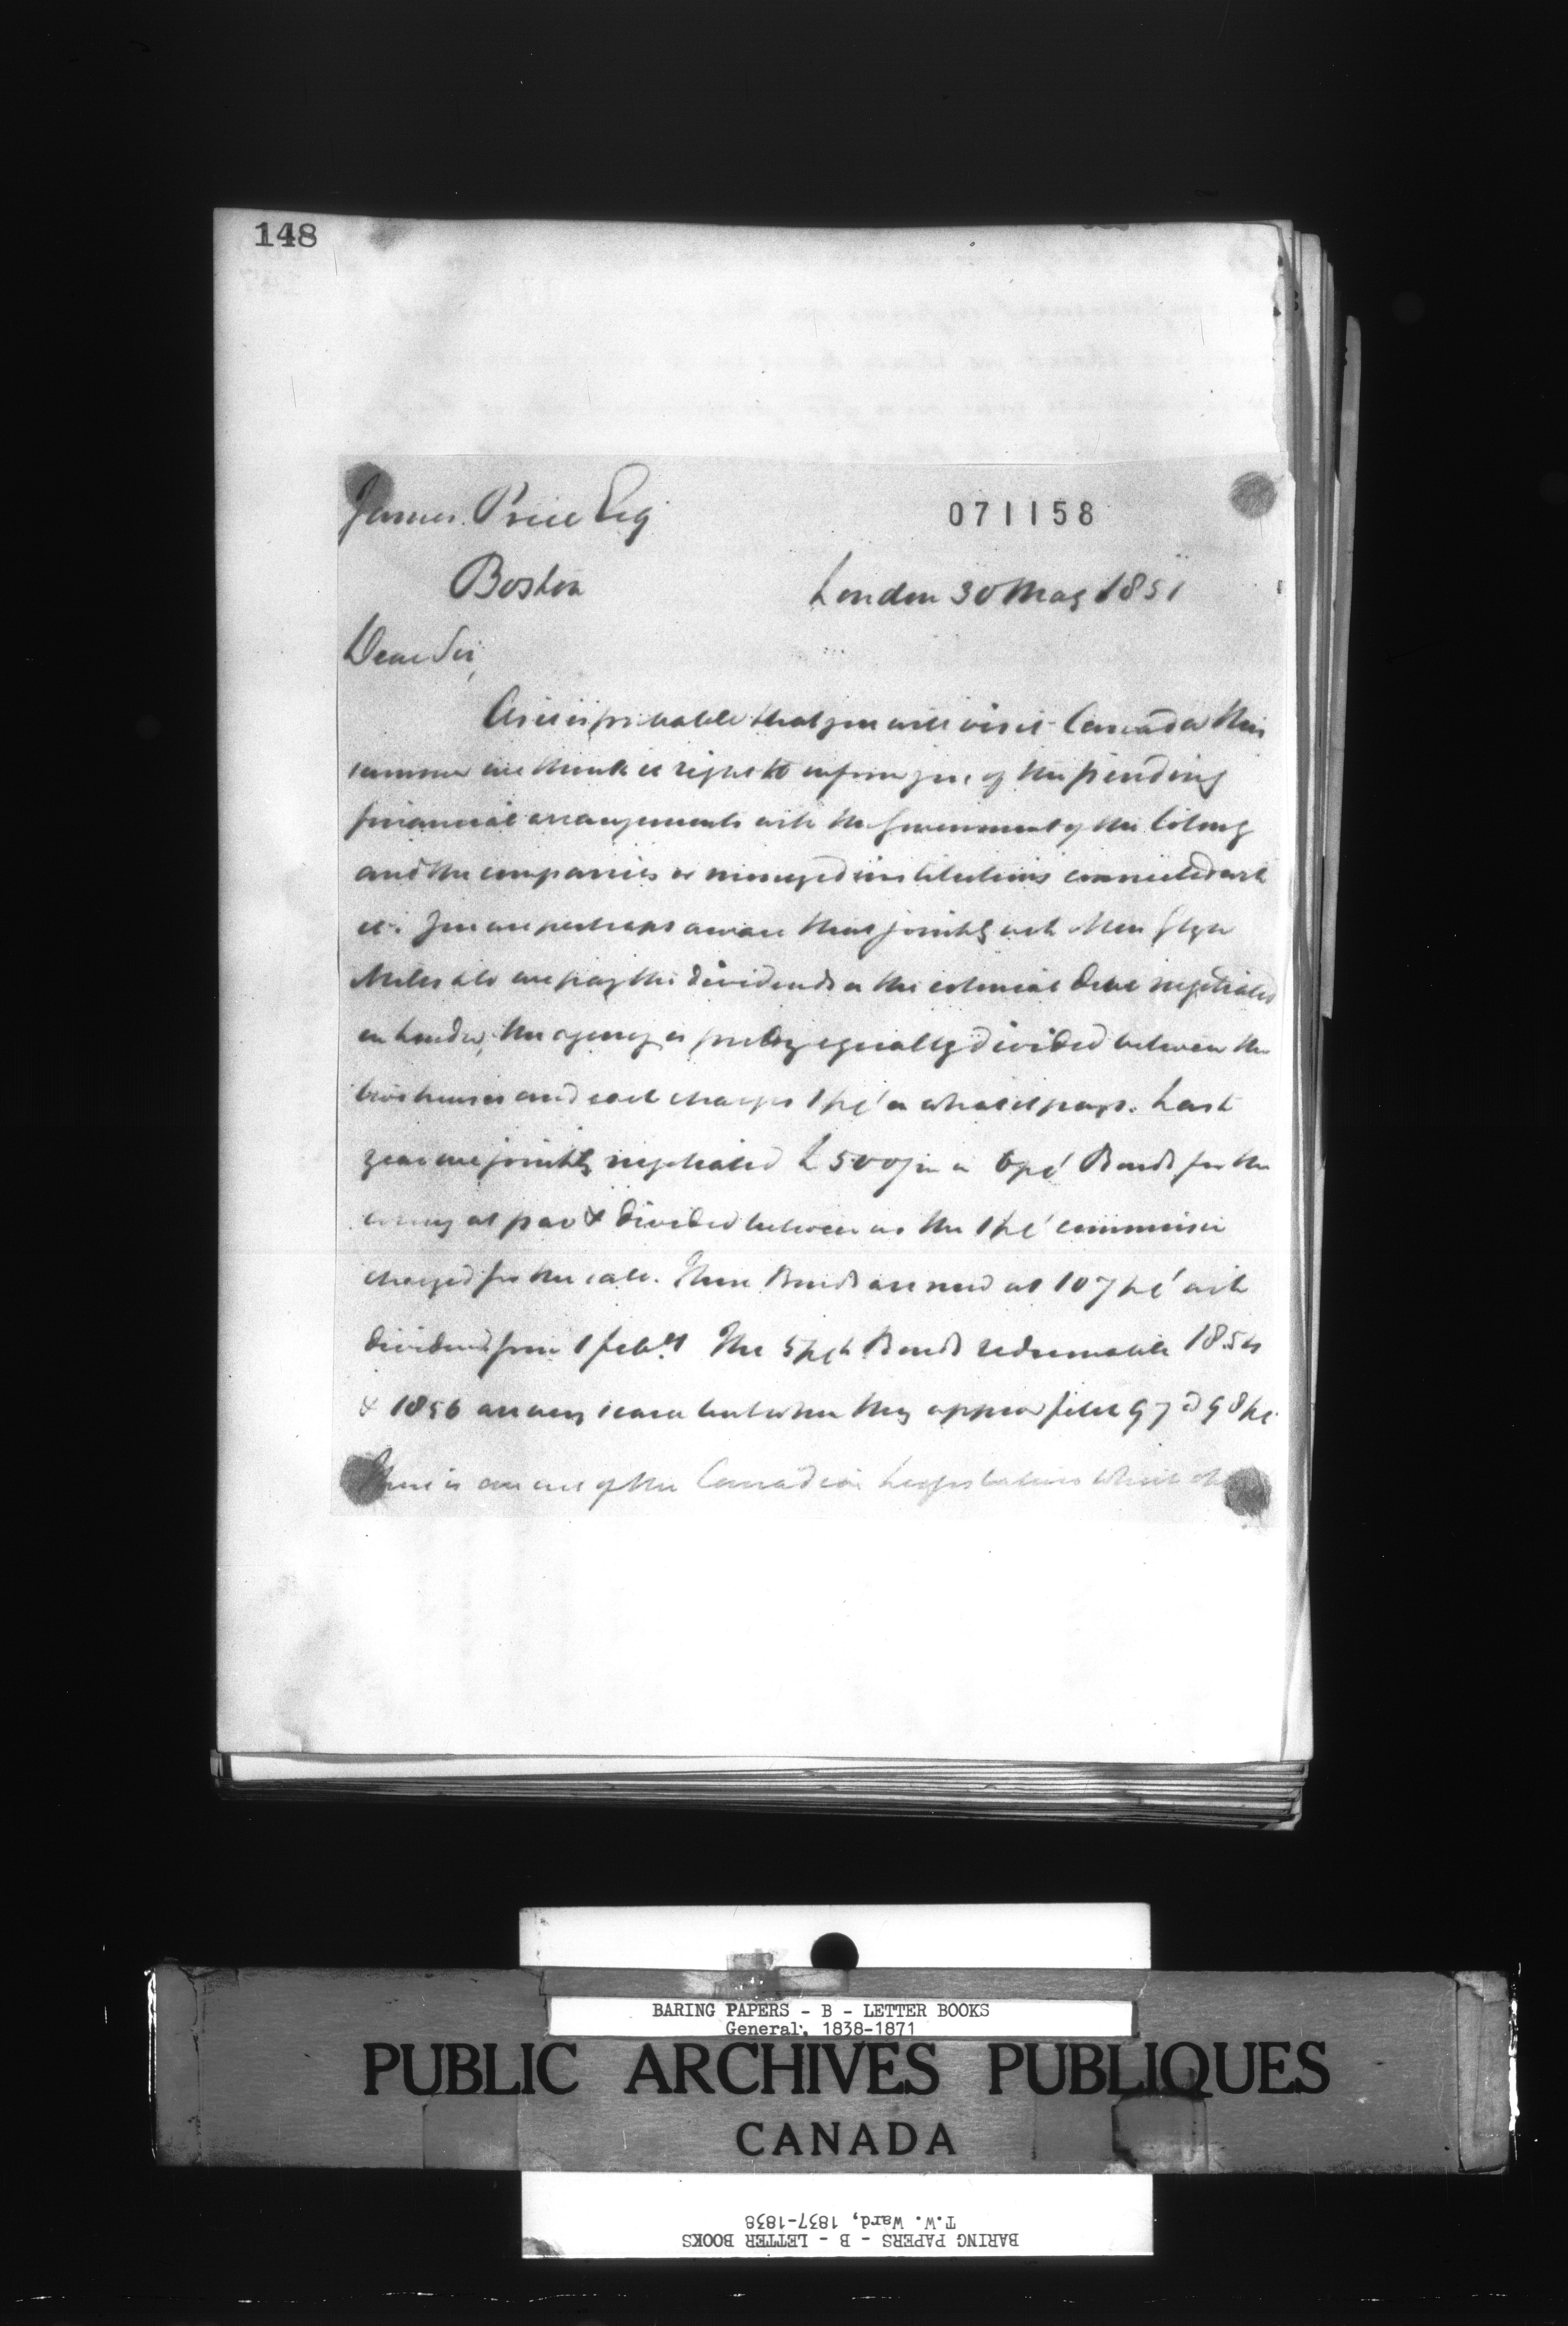 148
James Price Esq
071158
Boston
London 30 May 1851
Dear Sir,
As it is probable that you will visit Canada this
summer we think it right to inform you of the pending
financial arrangements with the Government of the Colony
and the companies or institutions connected with
it. You are perhaps aware that jointly with Mess Glyn
Mills & Co we pay the dividends on the colonial debt negotiated
in London, the agency is equally divided between the
two houses and each charges 1 pc' on what it pays. Last
year we jointly negotiated £500/m in 6 pc' Bonds for the
colony at par & divided between us the 1 pc' commission
charged for the sale. These Bonds are now at 107 pc' with
dividend from 1 feby The 5 pct Bonds redeemable 1854
& 1856 are very scarce but when they appear fetch 97 @ 98 pc
There is an act of the Canadian Legislature which
BARING PAPERS - B - LETTER BOOKS
General, 1838-1871
PUBLIC ARCHIVES PUBLIQUES
CANADA
T.W. Ward, 1837-1838
BARING PAPERS - B - LETTER BOOKS